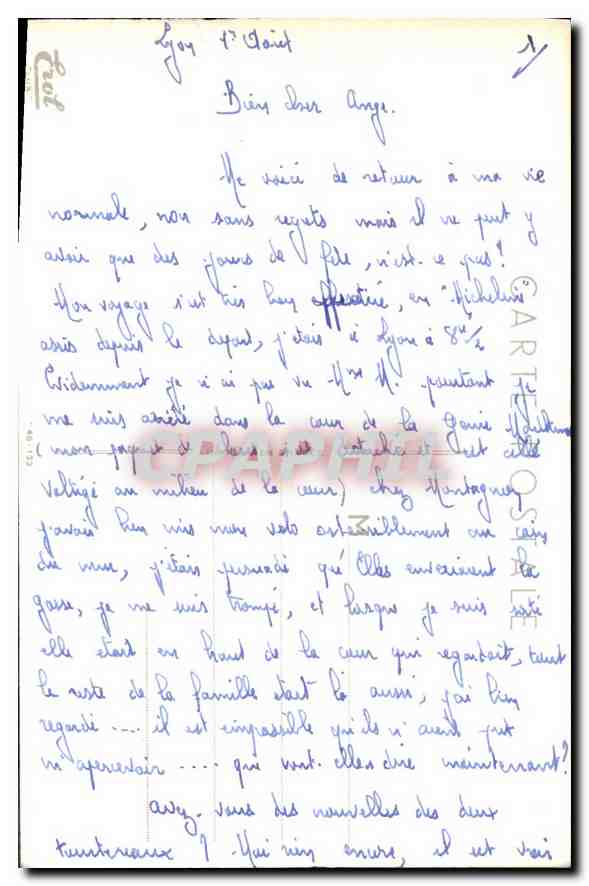 Lyon 1er Août
1/
Bien cher Ange.
Me voici de retour à ma vie
normale, non sans regrets mais il ne peut y
avoir que des jours de fête, n'est-ce pas!
Mon voyage s'est très bien effectué, en "Micheline"
assis depuis le départ, j'étais à Lyon à 8h 1/2
Evidemment je n'ai pas vu Mme M. pourtant je
me suis arrêté dans la cour de la
(mon paquet de s'est et est allé
voltigé au milieu de la cour) chez Montagner
j'avais bien mis mon velo ostensiblement au coin
du mur, j'étais persuadé qu'Elles enverraient la
gosse, je me suis trompé, et lorsque je suis sorti
elle était en haut de la cour qui regardait, tout
le reste de la famille était là aussi, j'ai bien
regardé .... il est impossible qu'ils n'aient put
m'apercevoir .... que vont-elles dire maintenant?
Avez-vous des nouvelles des deux
tourtereaux ? Moi rien encore, il est vrai
CARTE POSTALE
CPAPHIL